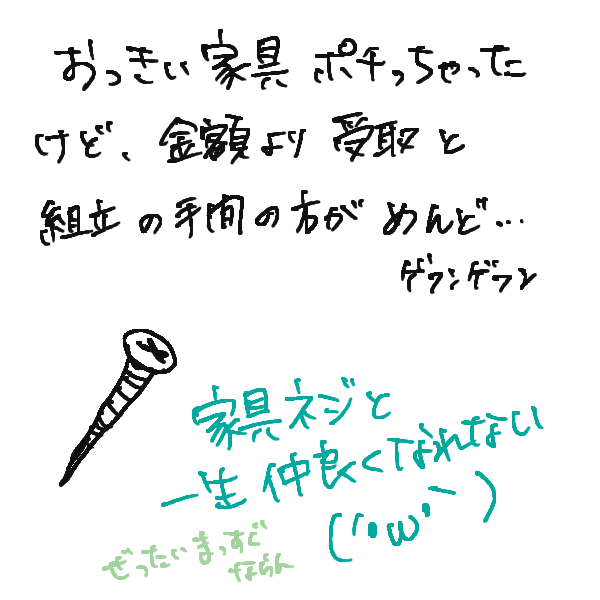 おっきい家具ポチっちゃった
けど、金額より受取と
組立の手間の方がめんど…
ゲワンゲワン
家具ネジと
一生仲良くなれない
(´•ω•`)
ぜったいまっすぐ
ならん